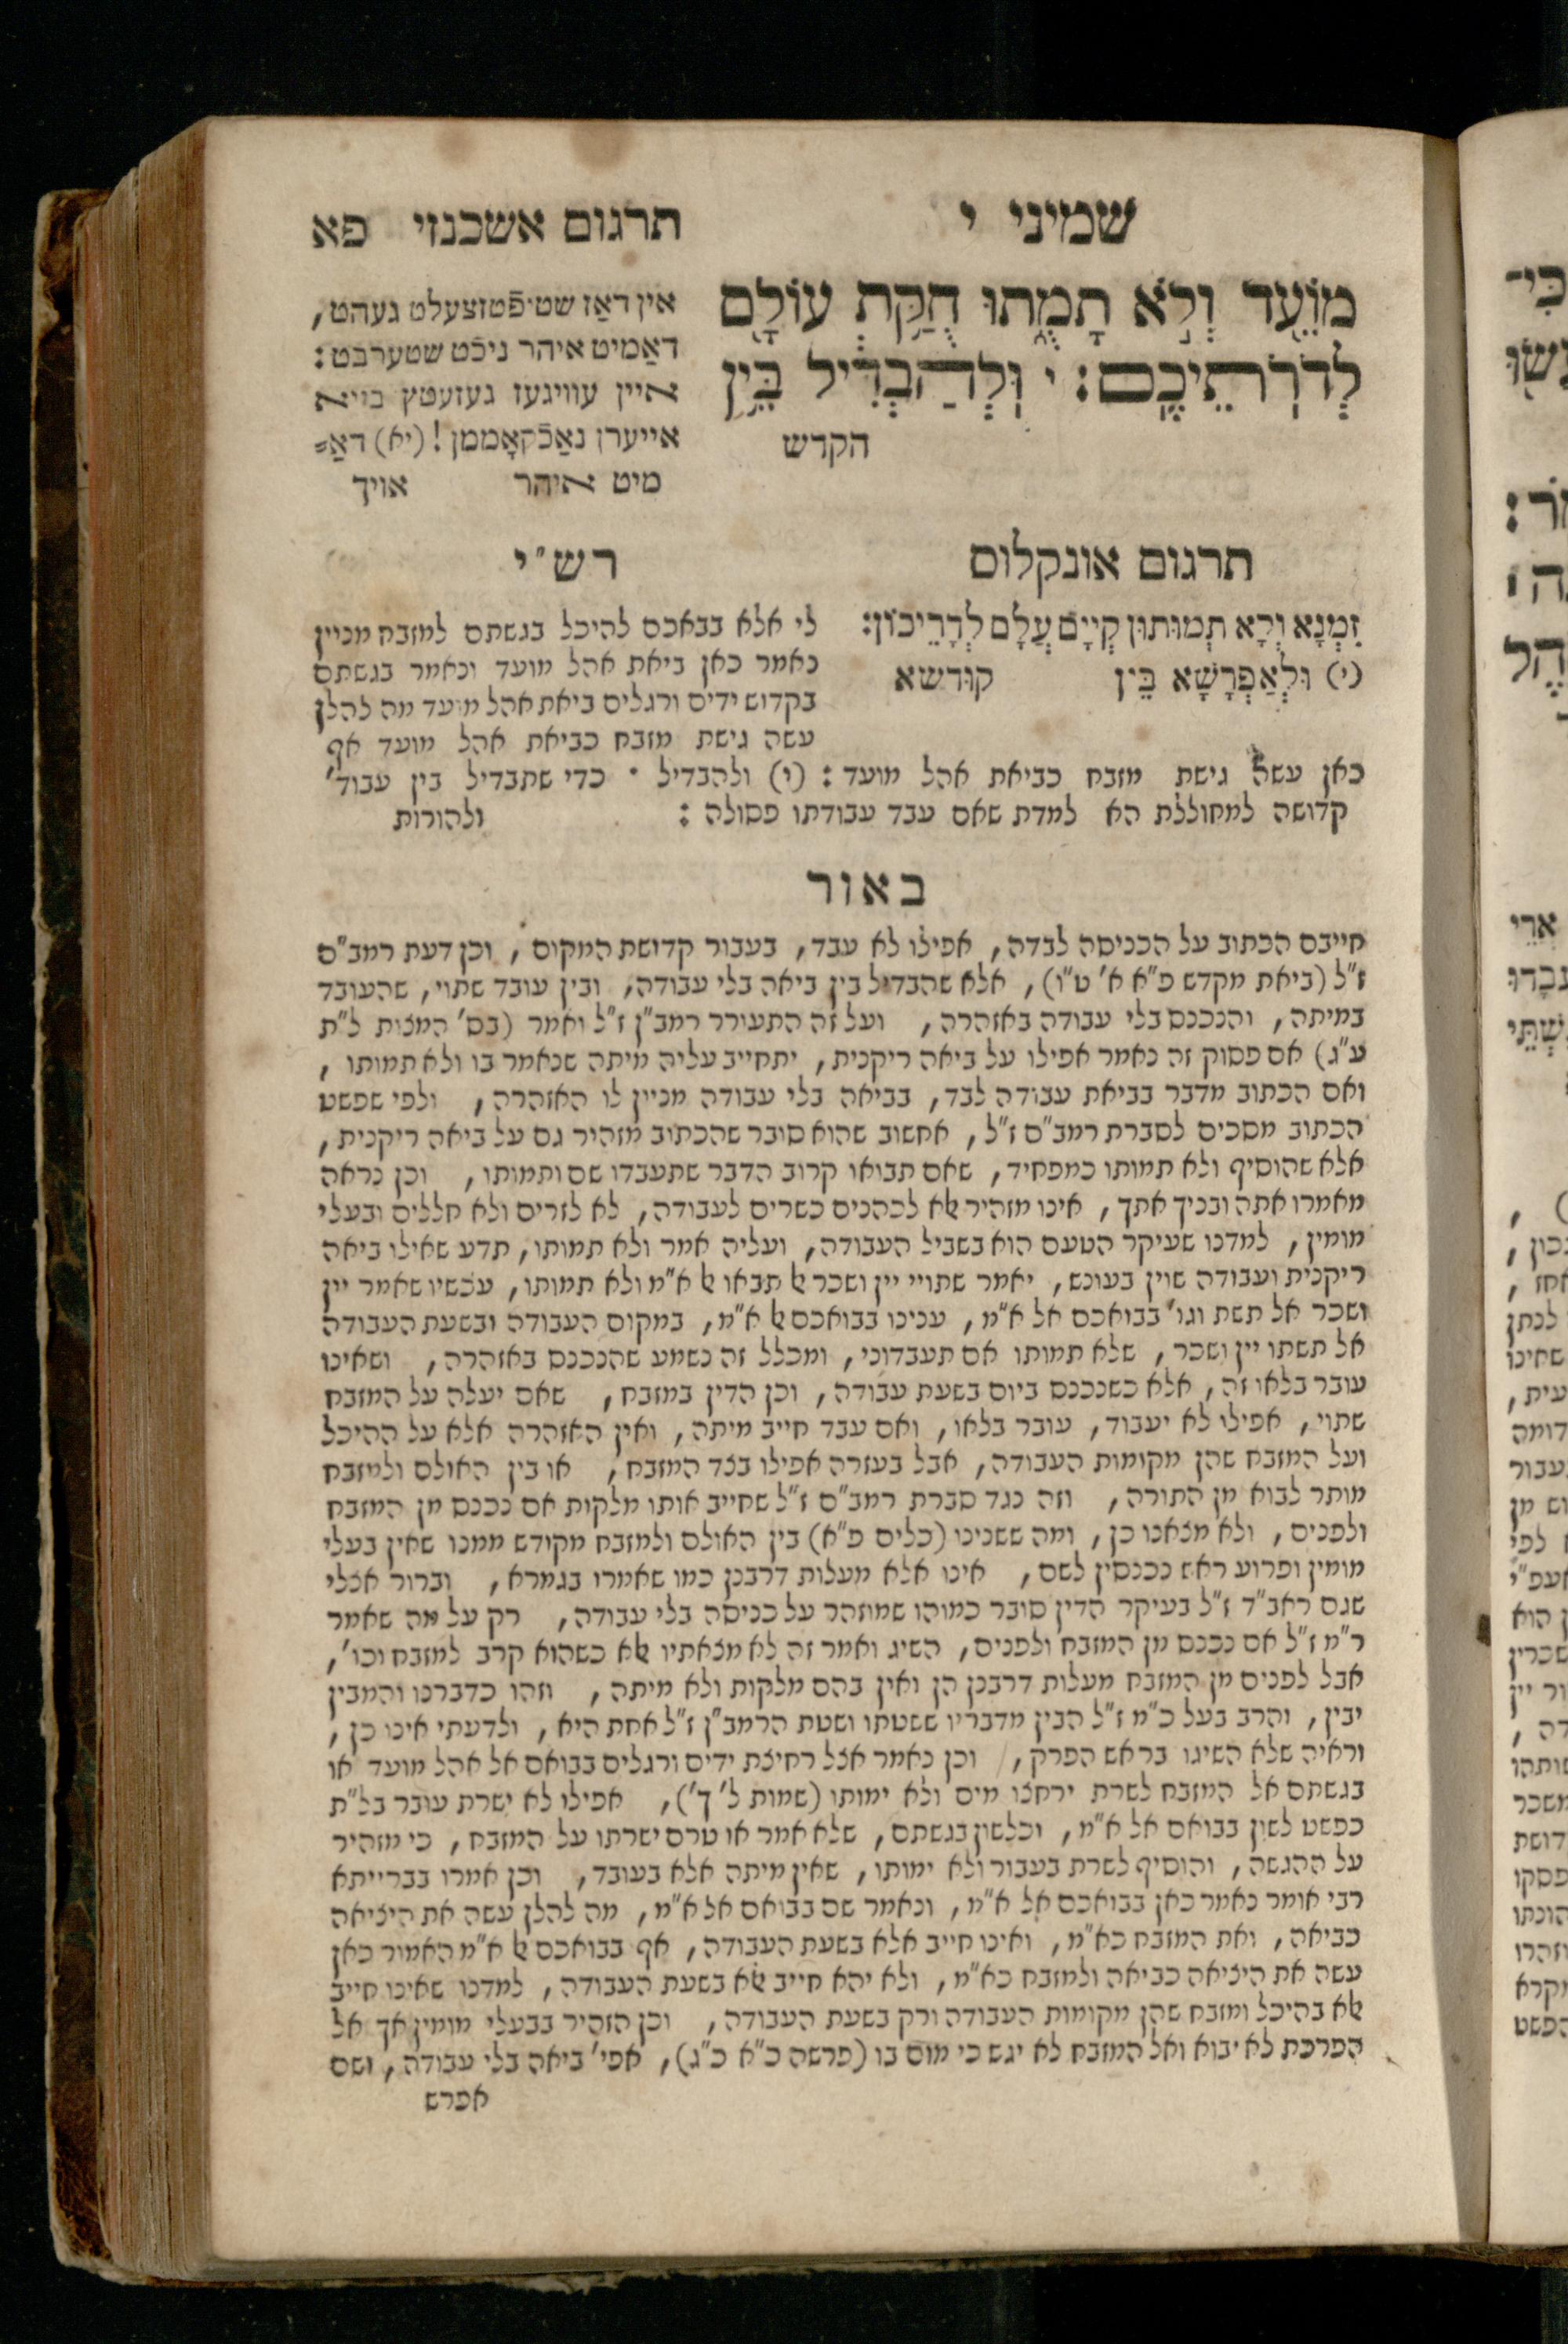 שמיני י
תרגום אשכנזי פא
מוֹעֵד וְלֹא תָמֻתוּ חֻקַּת עוֹלָם
לְדֹרֹתֵיכֶם: י וּלְהַבְדִּיל בֵּין
הקדש
אין דאַז שטיפֿטזצעלט געהט,
דאַמיט איהר ניכֿט שטערבט:
איין עוויגעז געזעטץ בייא
אייערן נאַכֿקאָממן! (יא) דאַ=
מיט איהר אויך
תרגום אונקלוס
זִמְנָא וְלָא תְמוּתוּן קְיָים עֲלָם לְדָרֵיכוֹן:
(י) וּלְאַפְרָשָׁא בֵּין קוּדשא
רש"י
לי אלא בבאכם להיכל בגשתם למזבח מניין
נאמר כאן ביאת אהל מועד ונאמר בגשתם
בקדוש ידים ורגלים ביאת אהל מועד מה להלן
עשה גישת מזבח כביאת אהל מועד אף
כאן עשה גישת מזבח כביאת אהל מועד: (י) ולהבדיל · כדי שתבדיל בין עבוד'
קדושה למחוללת הא למדת שאם עבד עבודתו פסולה: ולהורות
באור
חייבם הכתוב על הכניסה לבדה, אפילו לא עבד, בעבור קדושת המקום, וכן דעת רמב"ם
ז"ל (ביאת מקדש פ"א א' ט"ו), אלא שהבדיל בין ביאה בלי עבודה, ובין עובד שתוי, שהעובד
במיתה, והנכנס בלי עבודה באזהרה, ועל זה התעורר רמב"ן ז"ל ואמר (בס' המצות ל"ת
ע"ג) אם פסוק זה נאמר אפילו על ביאה ריקנית, יתחייב עליה מיתה שנאמר בו ולא תמותו,
ואם הכתוב מדבר בביאת עבודה לבד, בביאה בלי עבודה מניין לו האזהרה, ולפי שפשט
הכתוב מסכים לסברת רמב"ם ז"ל, אחשוב שהוא סובר שהכתוב מזהיר גם על ביאה ריקנית,
אלא שהוסיף ולא תמותו כמפחיד, שאם תבואו קרוב הדבר שתעבדו שם ותמותו, וכן נראה
מאמרו אתה ובניך אתך, אינו מזהיר אלא לכהנים כשרים לעבודה, לא לזרים ולא חללים ובעלי
מומין, למדנו שעיקר הטעם הוא בשביל העבודה, ועליה אמר ולא תמותו, תדע שאילו ביאה
ריקנית ועבודה שוין בעונש, יאמר שתויי יין ושכר אל תבאו אל א"מ ולא תמותו, עכשיו שאמר יין
ושכר אל תשת וגו' בבואכם אל א"מ, ענינו בבואכם אל א"מ, במקום העבודה ובשעת העבודה
אל תשתו יין ושכר, שלא תמותו אם תעבדוני, ומכלל זה נשמע שהנכנס באזהרה, ושאינו
עובר בלאו זה, אלא כשנכנס ביום בשעת עבודה, וכן הדין במזבח, שאם יעלה על המזבח
שתוי, אפילו לא יעבוד, עובר בלאו, ואם עבד חייב מיתה, ואין האזהרה אלא על ההיכל
ועל המזבח שהן מקומות העבודה, אבל בעזרה אפילו בצד המזבח, או בין האולם ולמזבח
מותר לבוא מן התורה, וזה כנגד סברת רמב"ם ז"ל שחייב אותו מלקות אם נכנס מן המזבח
ולפנים, ולא מצאנו כן, ומה ששנינו (כלים פ"א) בין האולם ולמזבח מקודש ממנו שאין בעלי
מומין ופרוע ראש נכנסין לשם, אינו אלא מעלות דרבנן כמו שאמרו בגמרא, וברור אצלי
שגם ראב"ד ז"ל בעיקר הדין סובר כמוהו שמוזהר על כניסה בלי עבודה, רק על מה שאמר
ר"מ ז"ל אם נכנס מן המזבח ולפנים, השיג ואמר זה לא מצאתיו אלא כשהוא קרב למזבח וכו',
אבל לפנים מן המזבח מעלות דרבנן הן ואין בהם מלקות ולא מיתה, וזהו כדברנו והמבין
יבין, והרב בעל כ"מ ז"ל הבין מדבריו ששטתו ושטת הרמב"ן ז"ל אחת היא, ולדעתי אינו כן,
וראיה שלא השיגו בראש הפרק, וכן נאמר אצל רחיצת ידים ורגלים בבואם אל אהל מועד או
בגשתם אל המזבח לשרת ירחצו מים ולא ימותו (שמות ל' ך'), אפילו לא ישרת עובר בל"ת
כפשט לשון בבואם אל א"מ, וכלשון בגשתם, שלא אמר או טרם ישרתו על המזבח, כי מזהיר
על ההגשה, והוסיף לשרת בעבור ולא ימותו, שאין מיתה אלא בעובד, וכן אמרו בברייתא
רבי אומר נאמר כאן בבואכם אל א"מ, ונאמר שם בבואם אל א"מ, מה להלן עשה את היציאה
כביאה, ואת המזבח כא"מ, ואינו חייב אלא בשעת העבודה, אף בבואכם אל א"מ האמור כאן
עשה את היציאה כביאה ולמזבח כא"מ, ולא יהא חייב אלא בשעת העבודה, למדנו שאינו חייב
אלא בהיכל ומזבח שהן מקומות העבודה ורק בשעת העבודה, וכן הזהיר בבעלי מומין אך אל
הפרכת לא יבוא ואל המזבח לא יגש כי מום בו (פרשה כ"א כ"ג), אפי' ביאה בלי עבודה, ושם
אפרש